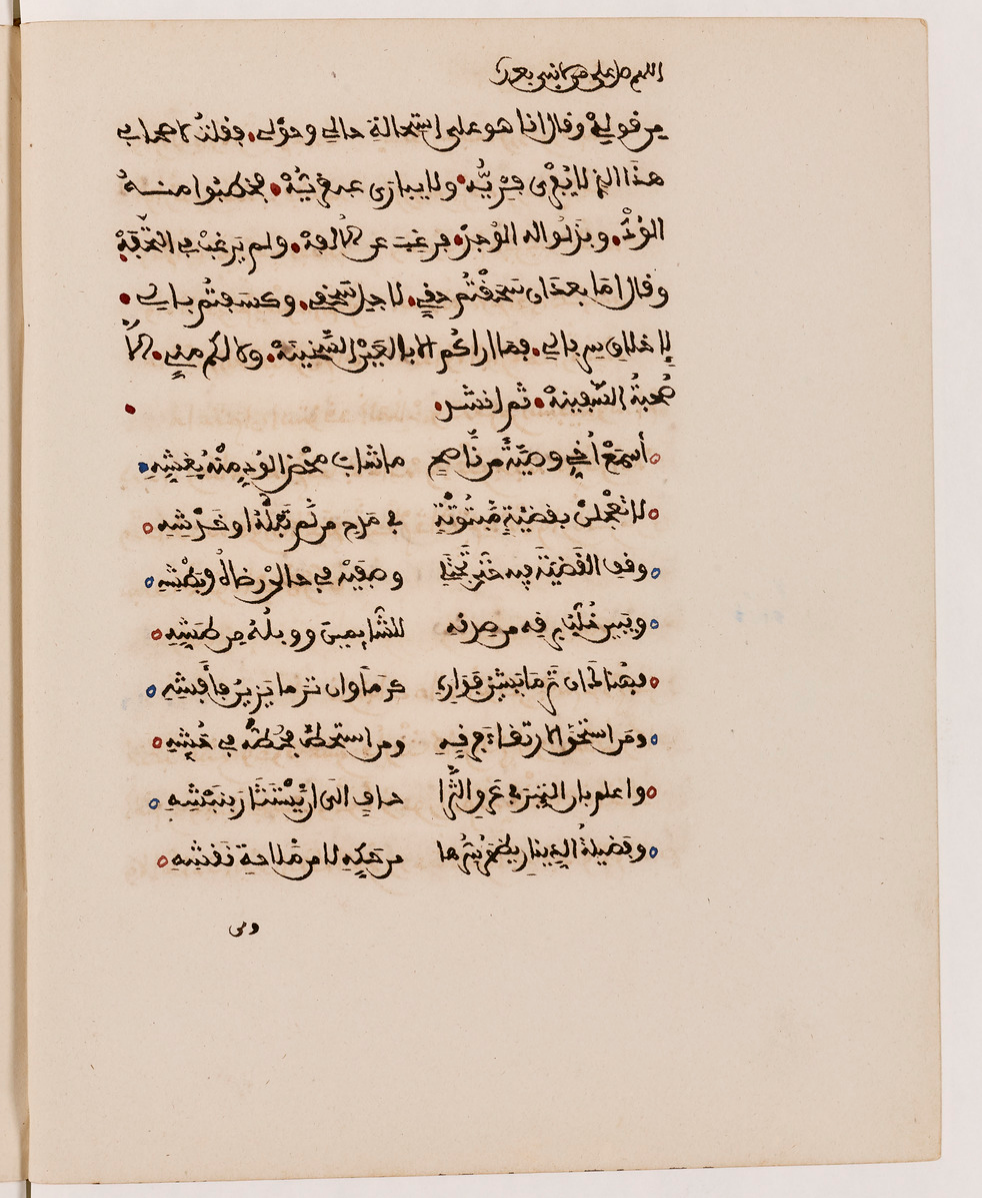 اللهم صل على من لا نبي بعده
من قولي وقال انا هو على استحالة حالي وحولي. فقلت لاصحابي
هذا الذي لا يُفْرى فَرِيُّه. ولا يبارى عبقريُّهْ. فخطبوا منه
الوُدَّ. وبذلوا له الوُجْدَ. فرغبَ عن الالُفةْ. ولم يَرغبْ في التُّحَفةْ.
وقال امّا بعد ان سَحَقْتُم حقي. لاجل سَحْقي. وكسَفتُم بالي.
لإخلاق سربالي. فما اراكم الا بالعَيْنِ السَّخينَةْ. ولا لكم مني. الاّ
صُحبةُ السّفينهْ. ثم انشد.
أسمعْ أُخَيَّ وصيّةً من ناصحٍ ما شاب محْضَ الوُدِّ منْهُ بِغِشِّهِ
لا تعْجَلَنْ بقضيّةٍ مَبْتُوتَةٍ في مَدح من لم تَبْلُهُ او خَدْشِهِ
وقفِ القَضيّةَ فيه حَتّى تَجْتَلي وصفَيْه في حالَيْ رضاهُ وبَطْشِهِ
ويَبين خُلَّبُ برقه من صدقه للشّايمينَ ووبلُهُ من طَشِّهِ
فهُناك ان تَرَ ما يَشِينُ فَوارِهِ كرَماً وان تر ما يَزينُ فأَفْشِهِ
ومَن استحَق الارتقاءَ فرقّهِ ومن استَحطَّ فحُطَّهُ في حُشِّهِ
واعلم بان التّبرَ في عرق الثَّرا خافٍ الَى ان يُسْتَثَارَ بنَبْشِهِ
وفضيلةُ الدّينارِ يظهَرُ سِرُّها من حَكِّهِ لا من مَلاحةِ نَقْشِهِ
ومن